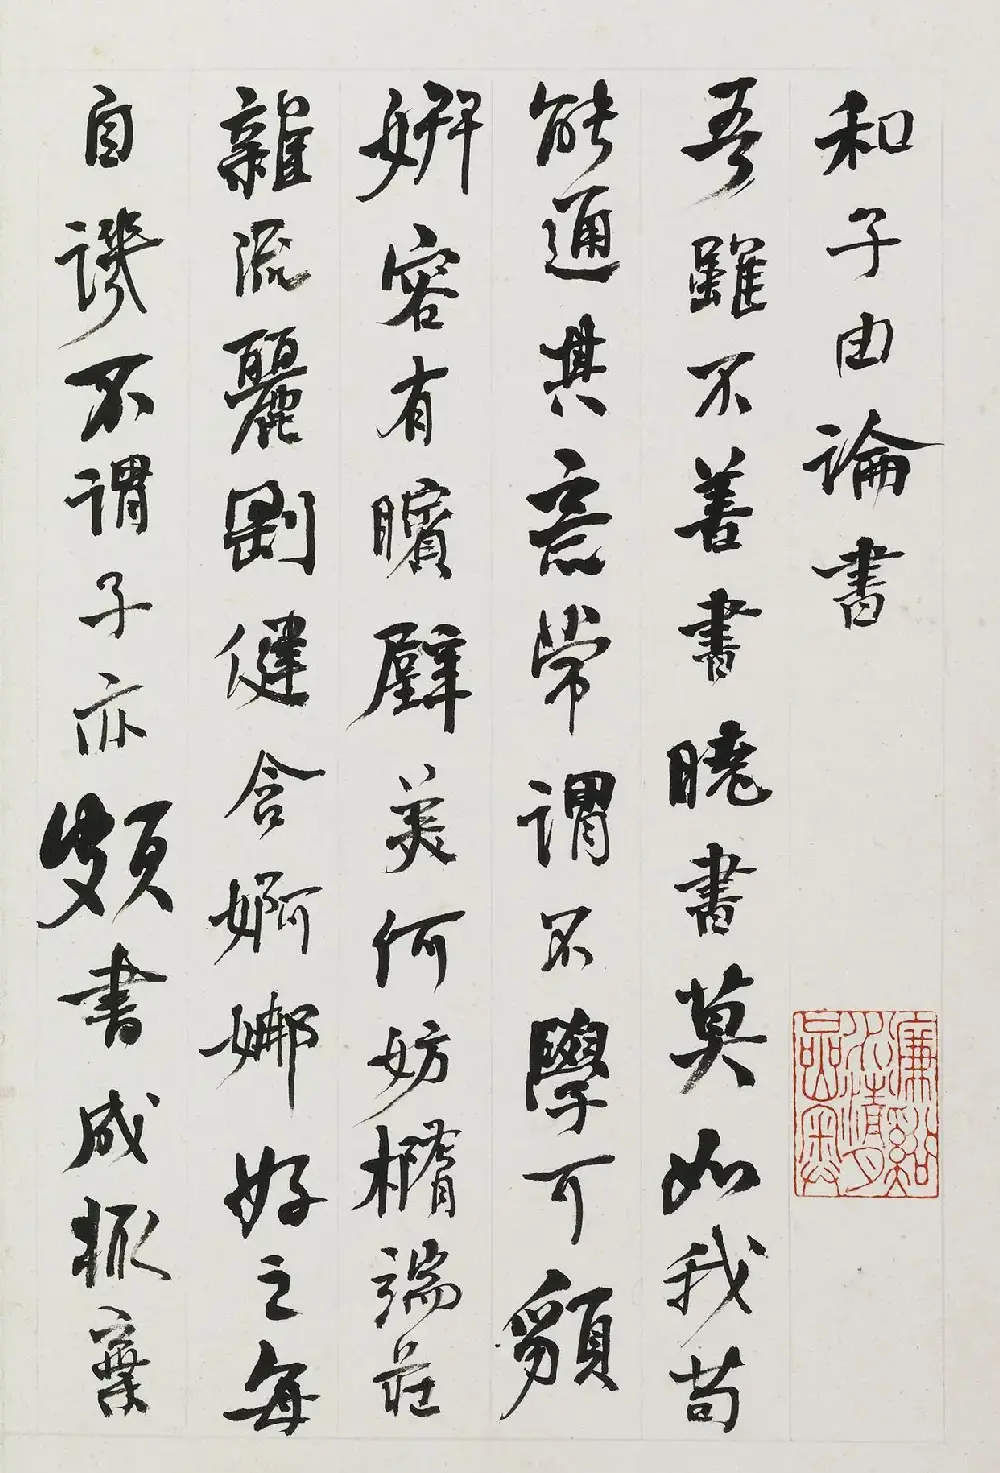 和子由論書
吾雖不善書曉書莫如我苟
能通其意常謂不學可貌
妍容有矉璧美何妨橢端莊
雜流麗剛健含婀娜好之每
自譏不謂子亦頗書成輒棄